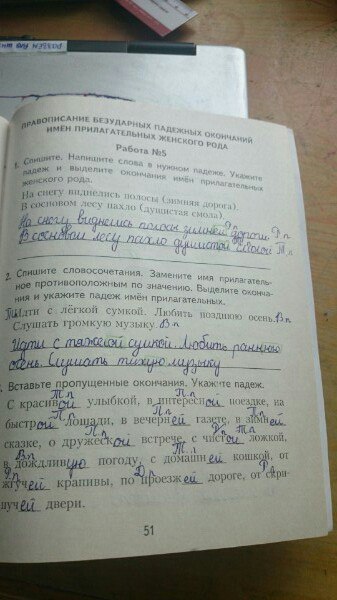 РАЗБЕЙ
ПРАВОПИСАНИЕ БЕЗУДАРНЫХ ПАДЕЖНЫХ ОКОНЧАНИЙ
ИМЁН ПРИЛАГАТЕЛЬНЫХ ЖЕНСКОГО РОДА
Работа №5
1. Спишите. Напишите слова в нужном падеже. Укажите
падеж и выделите окончания имён прилагательных
женского рода.
На снегу виднелись полосы (зимняя дорога).
В сосновом лесу пахло (душистая смола).
На снегу виднелись полосы зимней дороги Р.п
В сосновом лесу пахло душистой смолой Т.п
2. Спишите словосочетания. Замените имя прилагатель-
ное противоположным по значению. Выделите оконча-
ния и укажите падеж имён прилагательных.
Тп Идти с лёгкой сумкой. Любить позднюю осень. Вп
Слушать громкую музыку. Вп
Идти с тяжёлой сумкой. Любить раннюю
осень. Слушать тихую музыку
. Вставьте пропущенные окончания. Укажите падеж.
Тп Пп
С красивой улыбкой, в интересной поездке, на
Пп Пп Пп
быстрой лошади, в вечерней газете, в зимней
Пп Тп
сказке, о дружеской встрече, с чистой ложкой,
Вп Тп
в дождливую погоду, с домашней кошкой, от
Рп Дп Рп
жгучей крапивы, по проезжей дороге, от скри-
пучей двери.
51